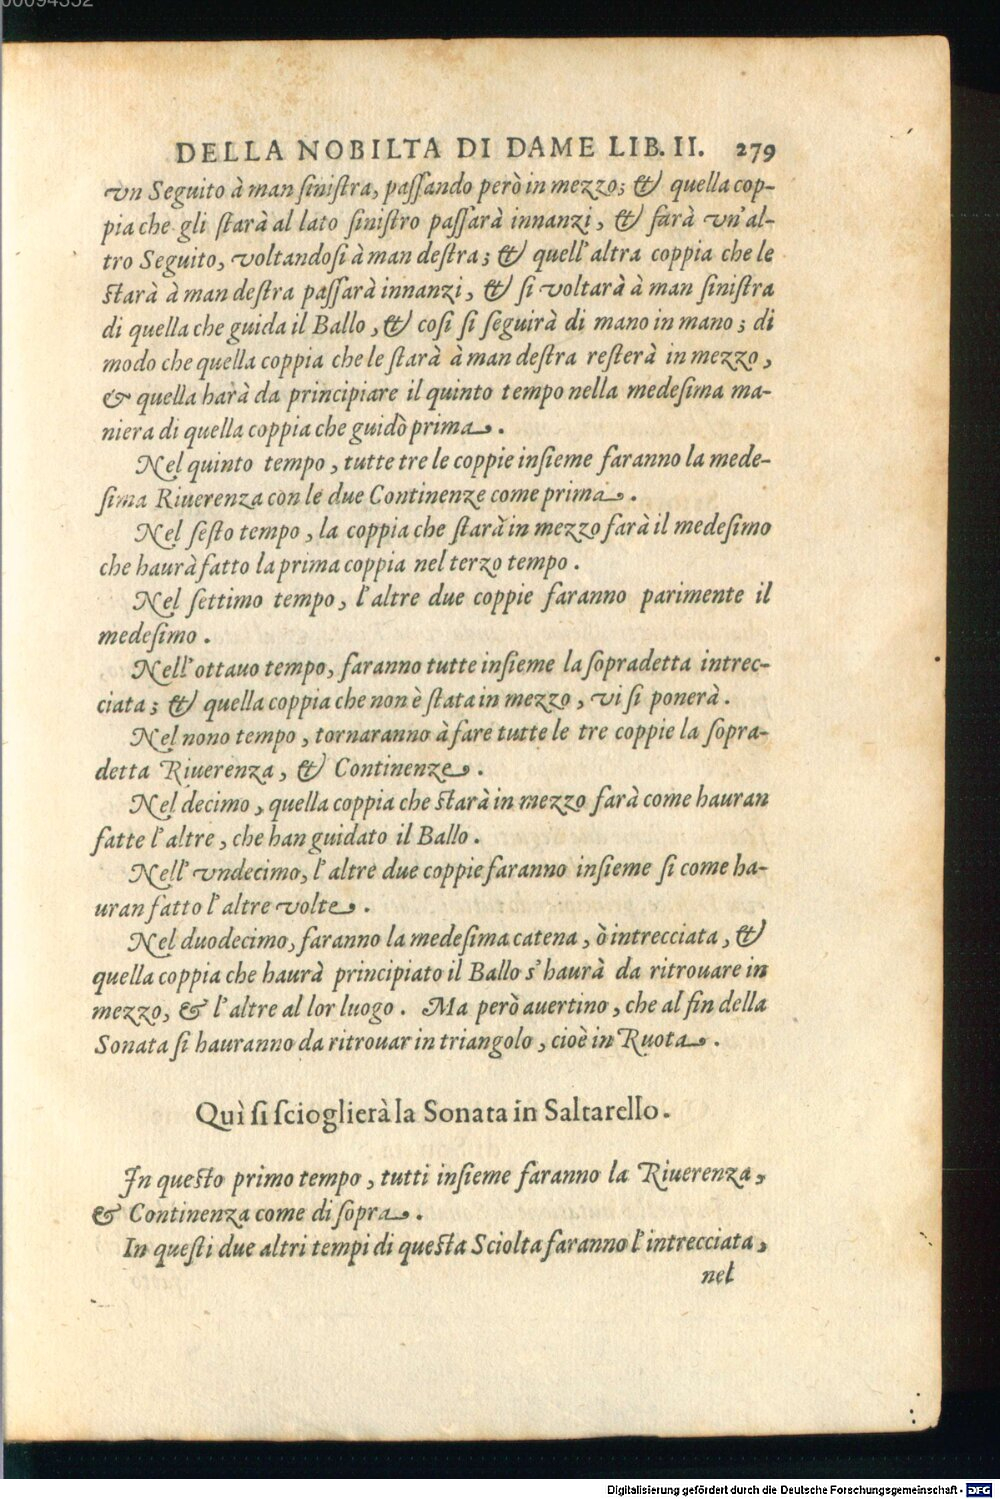 00094352
DELLA NOBILTA DI DAME LIB. II. 279
vn Seguito à man ſiniſtra, paſſando però in mezzo; & quella cop-
pia che gli ſtarà al lato ſiniſtro paſſarà innanzi, & farà vn'al-
tro Seguito, voltandoſi à man deſtra; & quell'altra coppia che le
ſtarà à man deſtra paſſarà innanzi, & ſi voltarà à man ſiniſtra
di quella che guida il Ballo, & coſi ſi ſeguirà di mano in mano; di
modo che quella coppia che le ſtarà à man deſtra reſterà in mezzo,
& quella harà da principiare il quinto tempo nella medeſima ma-
niera di quella coppia che guidò prima.
Nel quinto tempo, tutte tre le coppie inſieme faranno la mede-
ſima Riuerenza con le due Continenze come prima.
Nel ſeſto tempo, la coppia che ſtarà in mezzo farà il medeſimo
che haurà fatto la prima coppia nel terzo tempo.
Nel ſettimo tempo, l'altre due coppie faranno parimente il
medeſimo.
Nell'ottauo tempo, faranno tutte inſieme la ſopradetta intrec-
ciata; & quella coppia che non è ſtata in mezzo, vi ſi ponerà.
Nel nono tempo, tornaranno à fare tutte le tre coppie la ſopra-
detta Riuerenza, & Continenze.
Nel decimo, quella coppia che ſtarà in mezzo farà come hauran
fatte l'altre, che han guidato il Ballo.
Nell'vndecimo, l'altre due coppie faranno inſieme ſi come ha-
uran fatto l'altre volte.
Nel duodecimo, faranno la medeſima catena, ò intrecciata, &
quella coppia che haurà principiato il Ballo s'haurà da ritrouare in
mezzo, & l'altre al lor luogo. Ma però auertino, che al fin della
Sonata ſi hauranno da ritrouar in triangolo, cioè in Ruota.
Quì ſi ſcioglierà la Sonata in Saltarello.
In queſto primo tempo, tutti inſieme faranno la Riuerenza,
& Continenza come di ſopra.
In queſti due altri tempi di queſta Sciolta faranno l'intrecciata,
nel
Digitalisierung gefördert durch die Deutsche Forschungsgemeinschaft - DFG